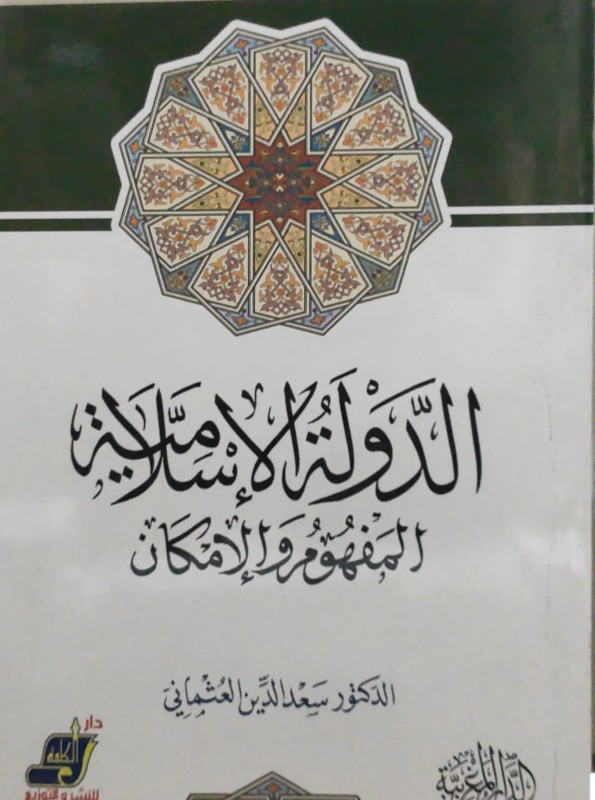 الدَّوْلَةُ الإِسْلَامِيَّة
المَفْهُومُ وَالإِمْكَان
الدكتور سَعْد الدِّين العُثْمَانِي
دار
الكلمة
للنشر والتوزيع
الدَّار المَغْرِبِيَّة